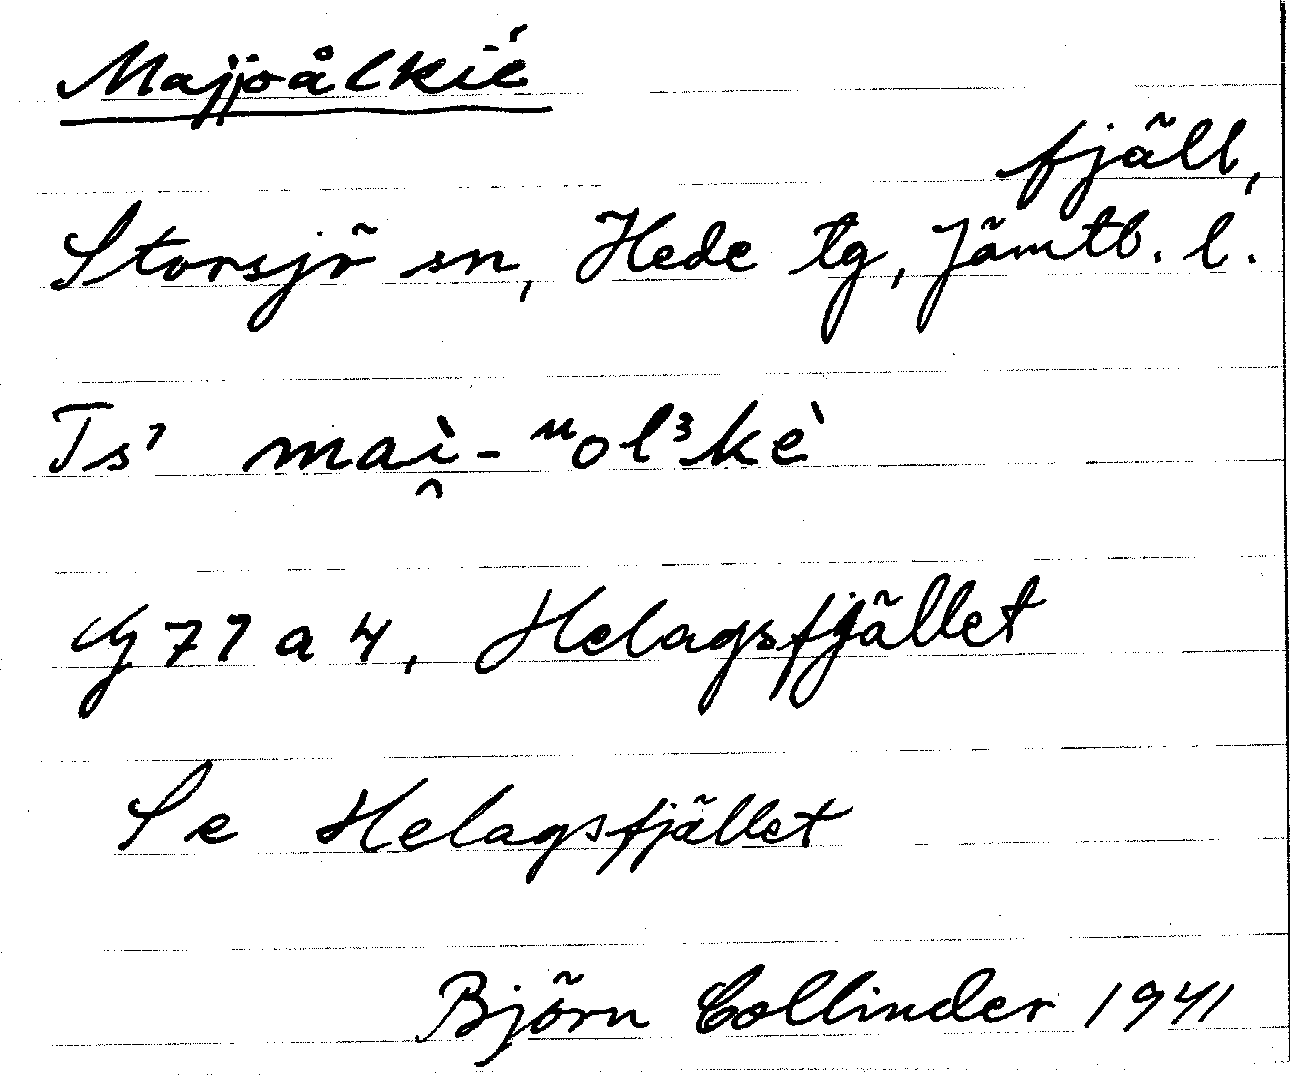 Majjoålkié
fjäll,
Storsjö sn, Hede tg, Jämtl. l.
Ts⁷ maì̯-ᵘol³kè
G 77 a 4, Helagsfjället
Se Helagsfjället
Björn Collinder 1941